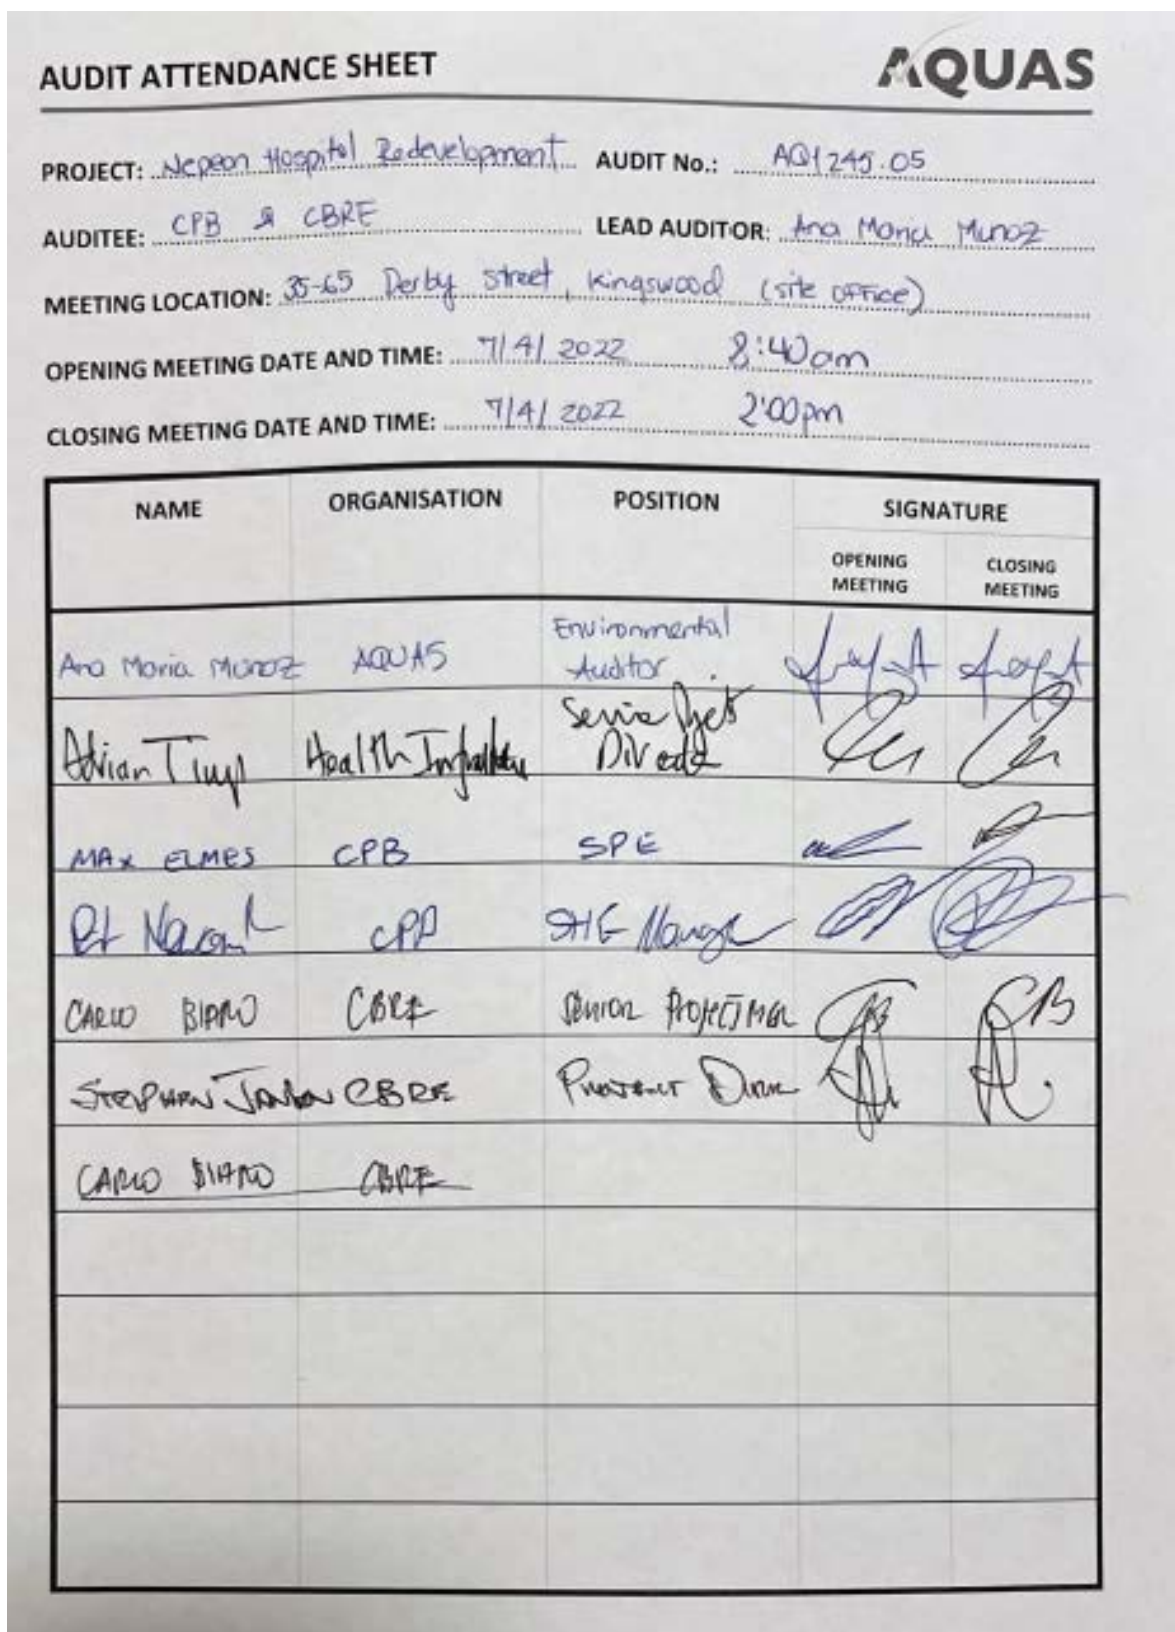 AUDIT ATTENDANCE SHEET
AQUAS
PROJECT: Nepean Hospital Redevelopment AUDIT No.: AQ1245.05
AUDITEE: CPB & CBRE LEAD AUDITOR: Ana Maria Munoz
MEETING LOCATION: 35-65 Derby Street, Kingswood (site office)
OPENING MEETING DATE AND TIME: 7/4/2022 8:40am
CLOSING MEETING DATE AND TIME: 7/4/2022 2:00pm
NAME ORGANISATION POSITION SIGNATURE
OPENING MEETING CLOSING MEETING
Ana Maria Munoz AQUAS Environmental Auditor
Adrian Health
MAX ELMES CPB SPE
SHE Manager
CARLO CBRE SENIOR PROJECT MGR CB
STEPHEN CBRE PROJECT
CARLO CBRE